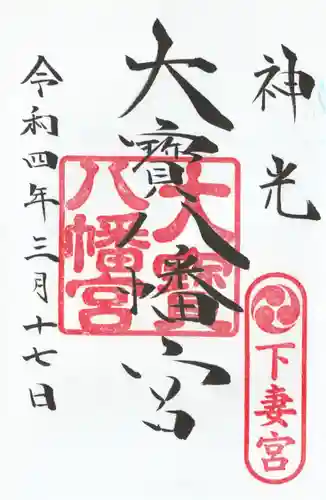 神光
大寳八幡宮
令和四年三月十七日
大寳
八幡宮
下妻宮